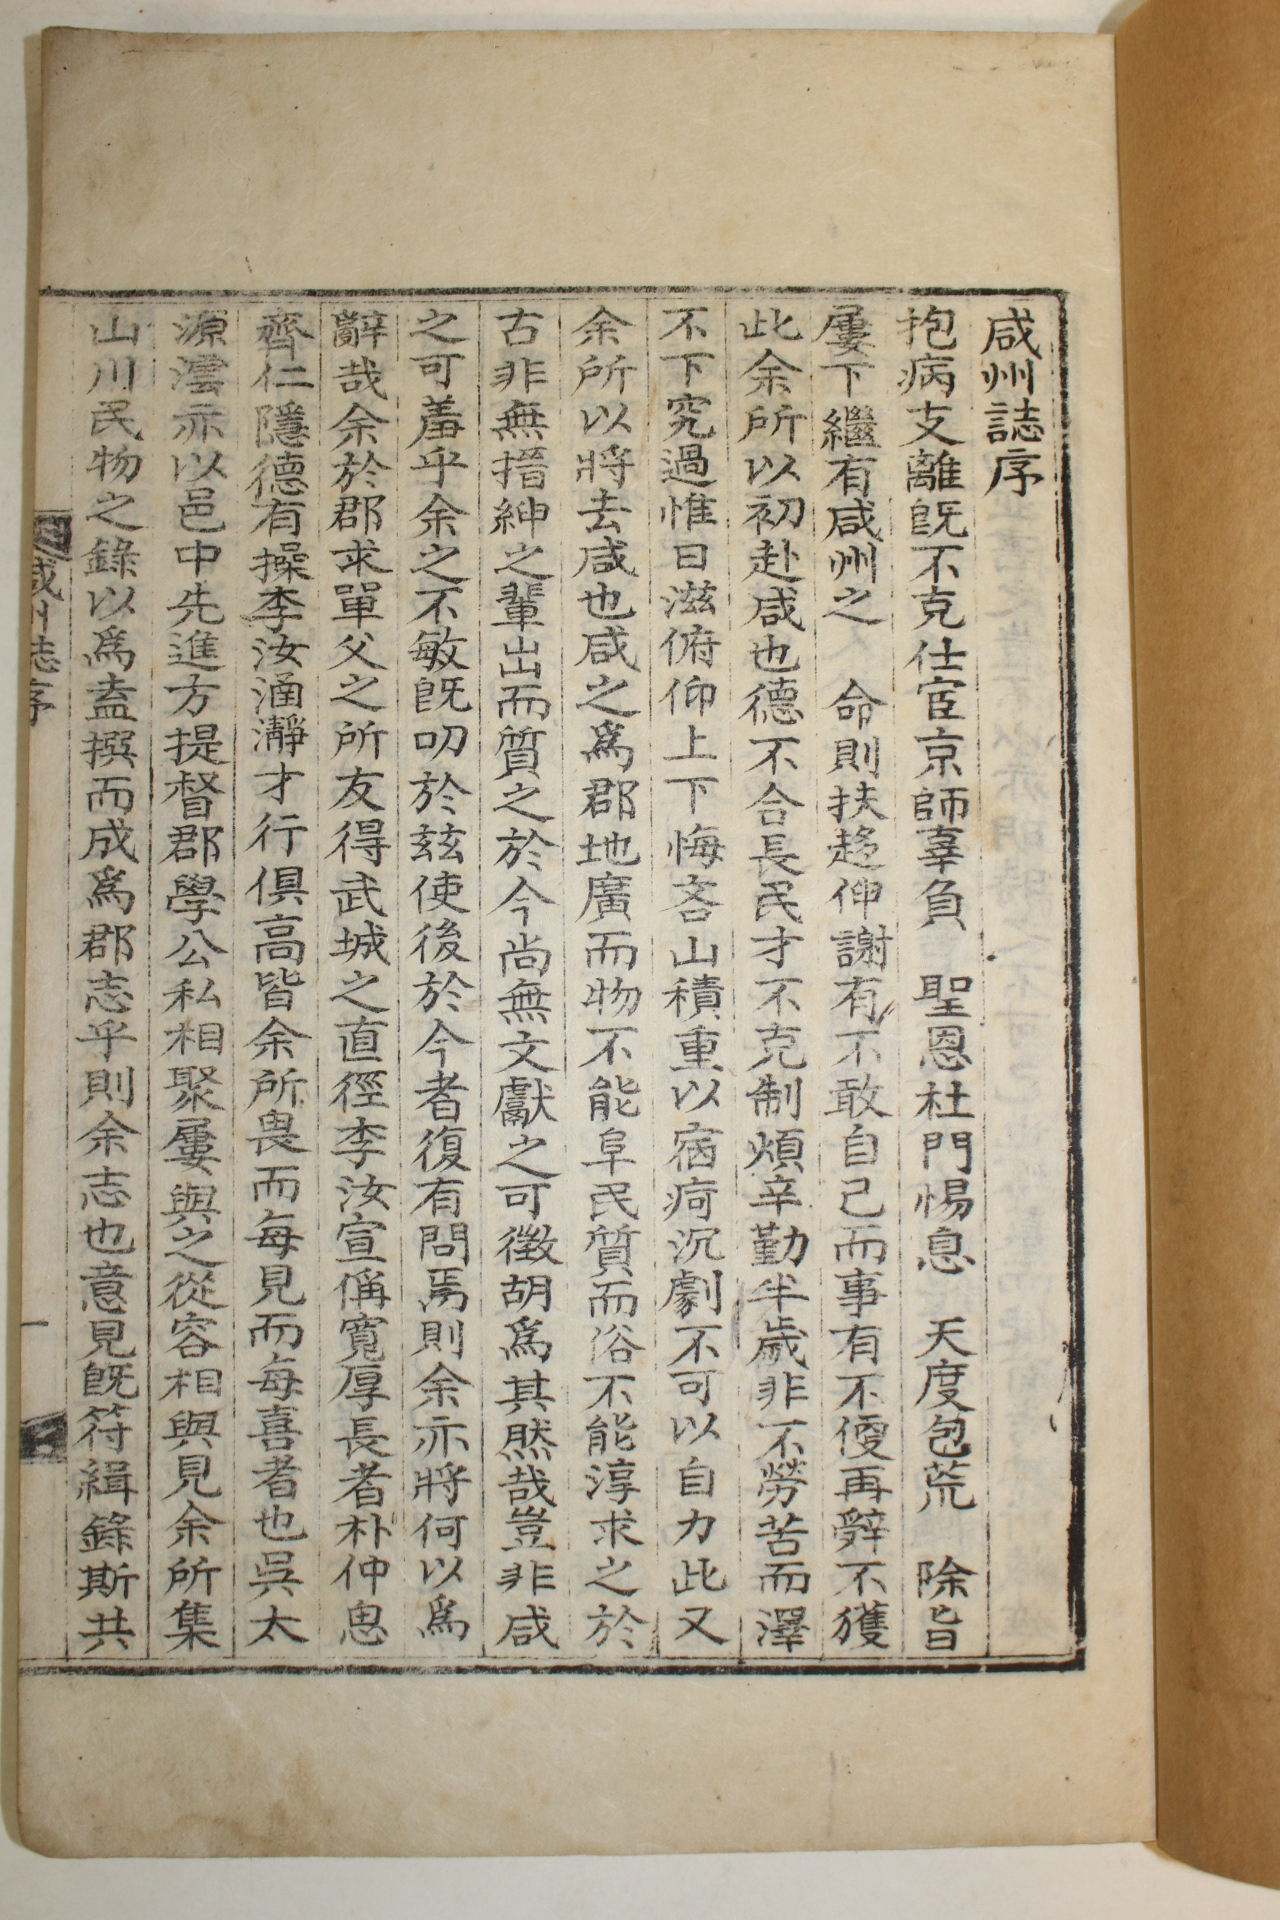 咸州誌序
抱病支離旣不克仕宦京師辜負　聖恩杜門惕息　天度包荒　除旨
屢下繼有咸州之　命則扶趍伸謝有不敢自己而事有不偠再辭不獲
此余所以初赴咸也德不合長民才不克制煩辛勤半歲非不勞苦而澤
不下究過惟日滋俯仰上下悔吝山積重以宿疴沉劇不可以自力此又
余所以將去咸也咸之爲郡地廣而物不能阜民質而俗不能淳求之於
古非無搢紳之輩出而質之於今尚無文獻之可徵胡爲其然哉豈非咸
之可羞乎余之不敏旣叨於玆使後於今者復有問焉則余亦將何以爲
辭哉余於郡求單父之所友得武城之直徑李汝宣偁寬厚長者朴仲思
齊仁隱德有操李汝涵瀞才行俱高皆余所畏而每見而每喜者也吳太
源澐亦以邑中先進方提督郡學公私相聚屢與之從容相與見余所集
山川民物之錄以爲盍撰而成爲郡志乎則余志也意見旣符緝錄斯共
咸州誌序
一